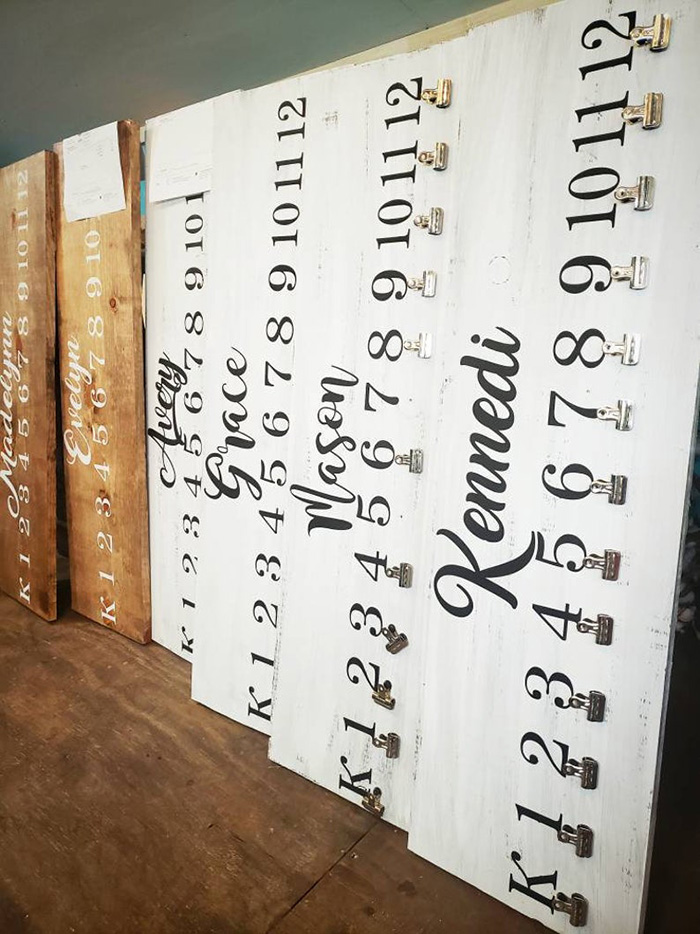 Madelynn
K 1 2 3 4 5 6 7 8 9 10 11 12
Evelyn
K 1 2 3 4 5 6 7 8 9 10
Avery
K 1 2 3 4 5 6 7 8 9 10
Grace
K 1 2 3 4 5 6 7 8 9 10 11 12
Mason
K 1 2 3 4 5 6 7 8 9 10 11 12
Kennedi
K 1 2 3 4 5 6 7 8 9 10 11 12